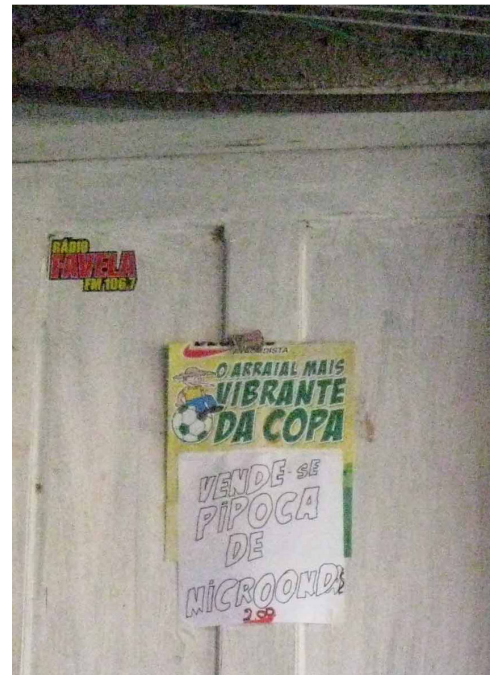 RÁDIO
FAVELA
FM 106,7
O ARRAIAL MAIS
VIBRANTE
DA COPA
VENDE-SE
PIPOCA
DE
MICROONDAS
2,00